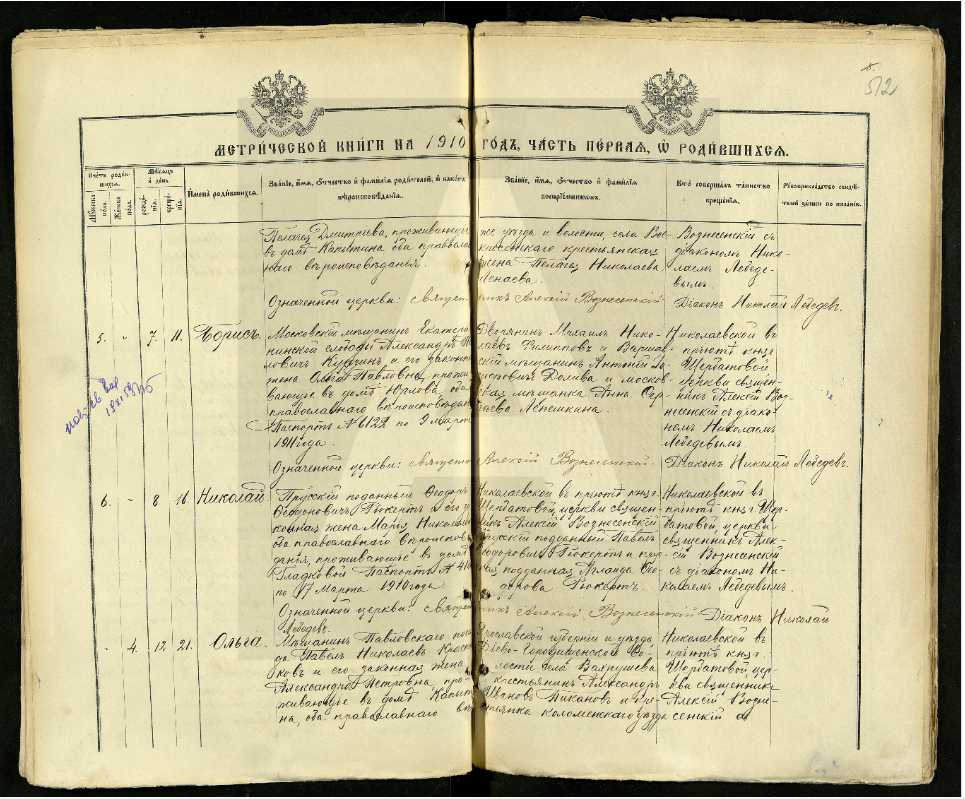 512
МЕТРИЧЕСКОЙ КНИГИ НА 1910 ГОДЪ, ЧАСТЬ ПЕРВАЯ, Ѡ РОДИВШИХСЯ.
Счетъ родившихся.
Мужска пола.
Женска пола.
Мѣсяцъ и день
рожденія.
крещенія.
Имена родившихся.
Званіе, имя, отчество и фамилія родителей, и какого
вѣроисповѣданія.
Званіе, имя, отчество и фамилія
воспріемниковъ.
Кто совершалъ таинство
крещенія.
Рукоприкладство свидѣтелей записи по желанію.
Пелагея Дмитриева, проживающіе
въ домѣ Капитина оба православнаго
вѣроисповѣданія.
же уѣзда и волости села Воскресенскаго крестьянская
жена Пелагея Николаева
Вознесенскій съ
діакономъ Николаемъ
Лебедевымъ.
Означенной церкви: священникъ Алексій Вознесенскій. Діаконъ Николай Лебедевъ.
5. - 7 11. Борисъ.
Московскій мѣщанинъ Екатерининской
слободы Александръ
Кузинъ и его законная
жена Ольга Павловна, проживающіе
въ домѣ Юрлова, оба
православнаго вѣроисповѣданія
Паспортъ № 6122 по 9 марта
1911 года.
Дворянинъ Михаилъ Николаевъ
Филипповъ и Варшавскій
мѣщанинъ Антоній
Долива и московская
мѣщанка Анна Сергѣева
Лепешкина.
Николаевской въ
пріютѣ княг.
Щербатовой
церкви священникъ
Алексій Вознесенскій
съ діакономъ
Николаемъ
Лебедевымъ
Означенной церкви: священникъ Алексій Вознесенскій. Діаконъ Николай Лебедевъ.
6. - 8 16. Николай
Прусскій подданный Ѳеодоръ
и его законная
жена Марія Николаевна
оба православнаго вѣроисповѣданія,
проживающіе въ домѣ
Гладковой Паспортъ №
по 17 Марта 1910 года
Николаевской въ пріютѣ княг.
Щербатовой, церкви священникъ
Алексій Вознесенскій
прусскій подданный Павелъ
Ѳеодоровичъ Гюкертъ и прусская
подданная
Ѳеодорова Гюкертъ.
Николаевской въ
пріютѣ княг. Щербатовой,
церкви
священникъ Алексій
Вознесенскій
съ діакономъ Николаемъ
Лебедевымъ.
Означенной церкви: священникъ Алексій Вознесенскій. Діаконъ Николай
Лебедевъ.
- 4. 12 21. Ольга.
Мѣщанинъ Павловскаго посада
Павелъ Николаевъ
и его законная жена
Александра Петровна, проживающіе
въ домѣ Капитина,
оба православнаго
Ярославской губерніи и уѣзда
волости села Вахрушева
крестьянинъ Александръ
Ивановъ Пикановъ и крестьянка
коломенскаго уѣзда
Николаевской въ
пріютѣ княг.
Щербатовой церкви
священникъ
Алексій Вознесенскій
съ